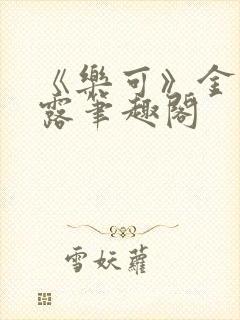 《樂可》金
露筆趣閣
雪妖蘿